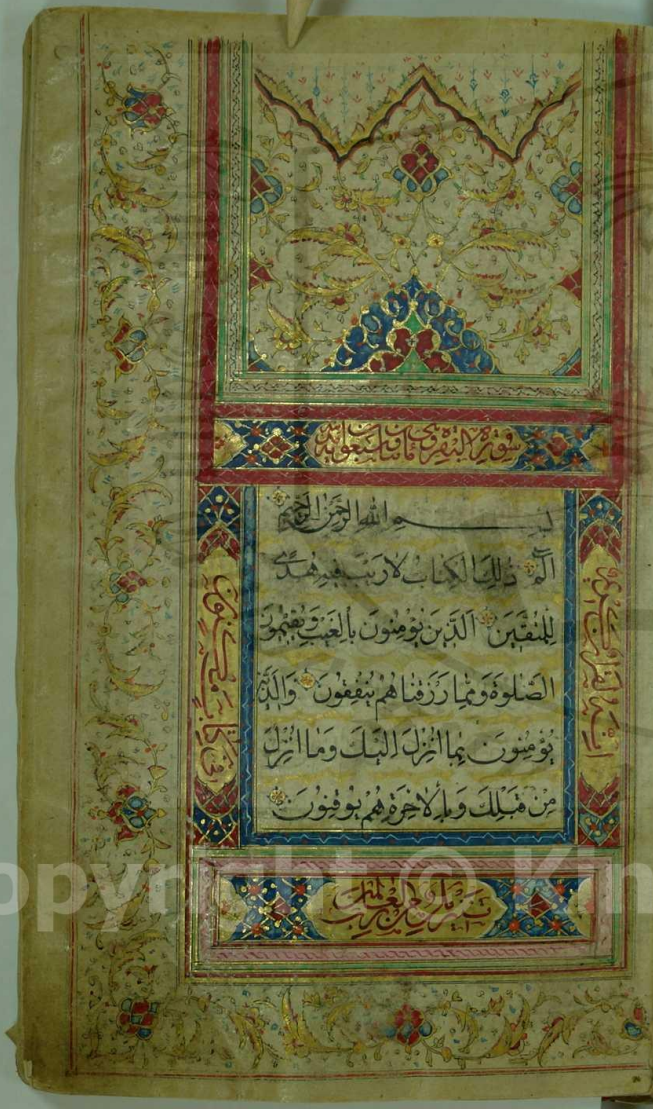 سورة البقرة
بسم الله الرحمن الرحيم
الم ذلك الكتاب لا ريب فيه هدى
للمتقين الذين يؤمنون بالغيب ويقيمون
الصلوة ومما رزقناهم ينفقون والذين
يؤمنون بما انزل اليك وما انزل
من قبلك وبالاخرة هم يوقنون
تنزيل من رب العالمين
opyright © Kin